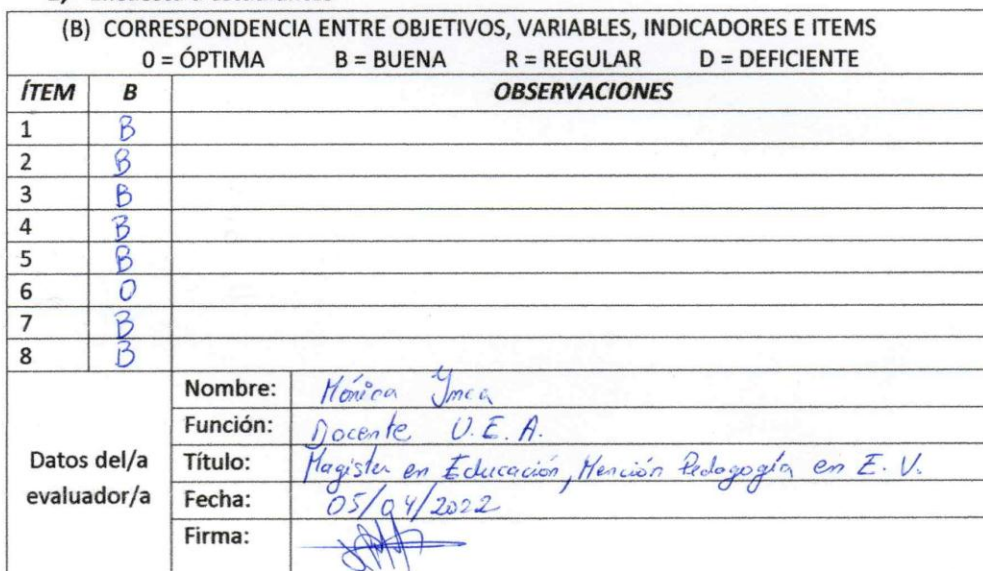 (B) CORRESPONDENCIA ENTRE OBJETIVOS, VARIABLES, INDICADORES E ITEMS
0 = ÓPTIMA B = BUENA R = REGULAR D = DEFICIENTE
ÍTEM B OBSERVACIONES
1 B
2 B
3 B
4 B
5 B
6 O
7 B
8 B
Datos del/a evaluador/a
Nombre: Mónica
Función: Docente U.E.A.
Título: Magister en Educación, Mención Pedagogía en E. V.
Fecha: 05/04/2022
Firma: